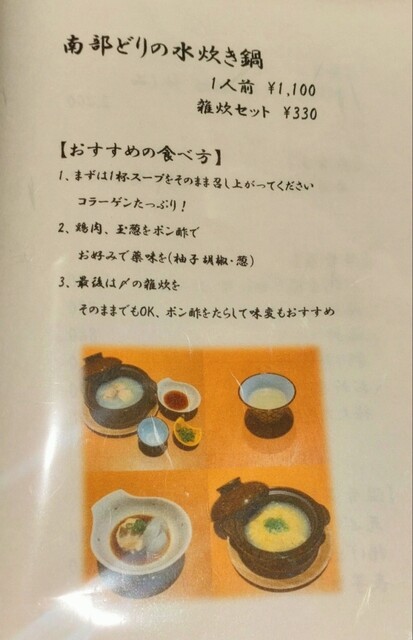 南部どりの水炊き鍋
1人前 ¥1,100
雑炊セット ¥330
【おすすめの食べ方】
1、まずは1杯スープをそのまま召し上がってください
コラーゲンたっぷり!
2、鶏肉、玉葱をポン酢で
お好みで薬味を(柚子胡椒・葱)
3、最後は〆の雑炊を
そのままでもOK、ポン酢をたらして味変もおすすめ